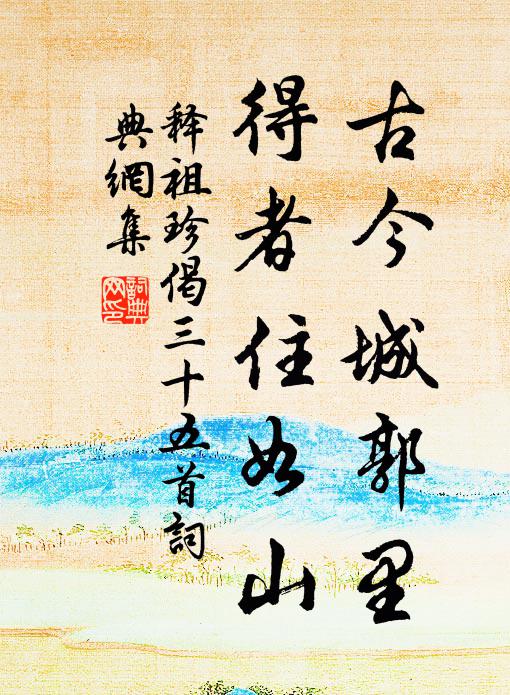 古今城郭里
得者住如山
释祖珍偈三十五首詞
典網集
詞典
网印